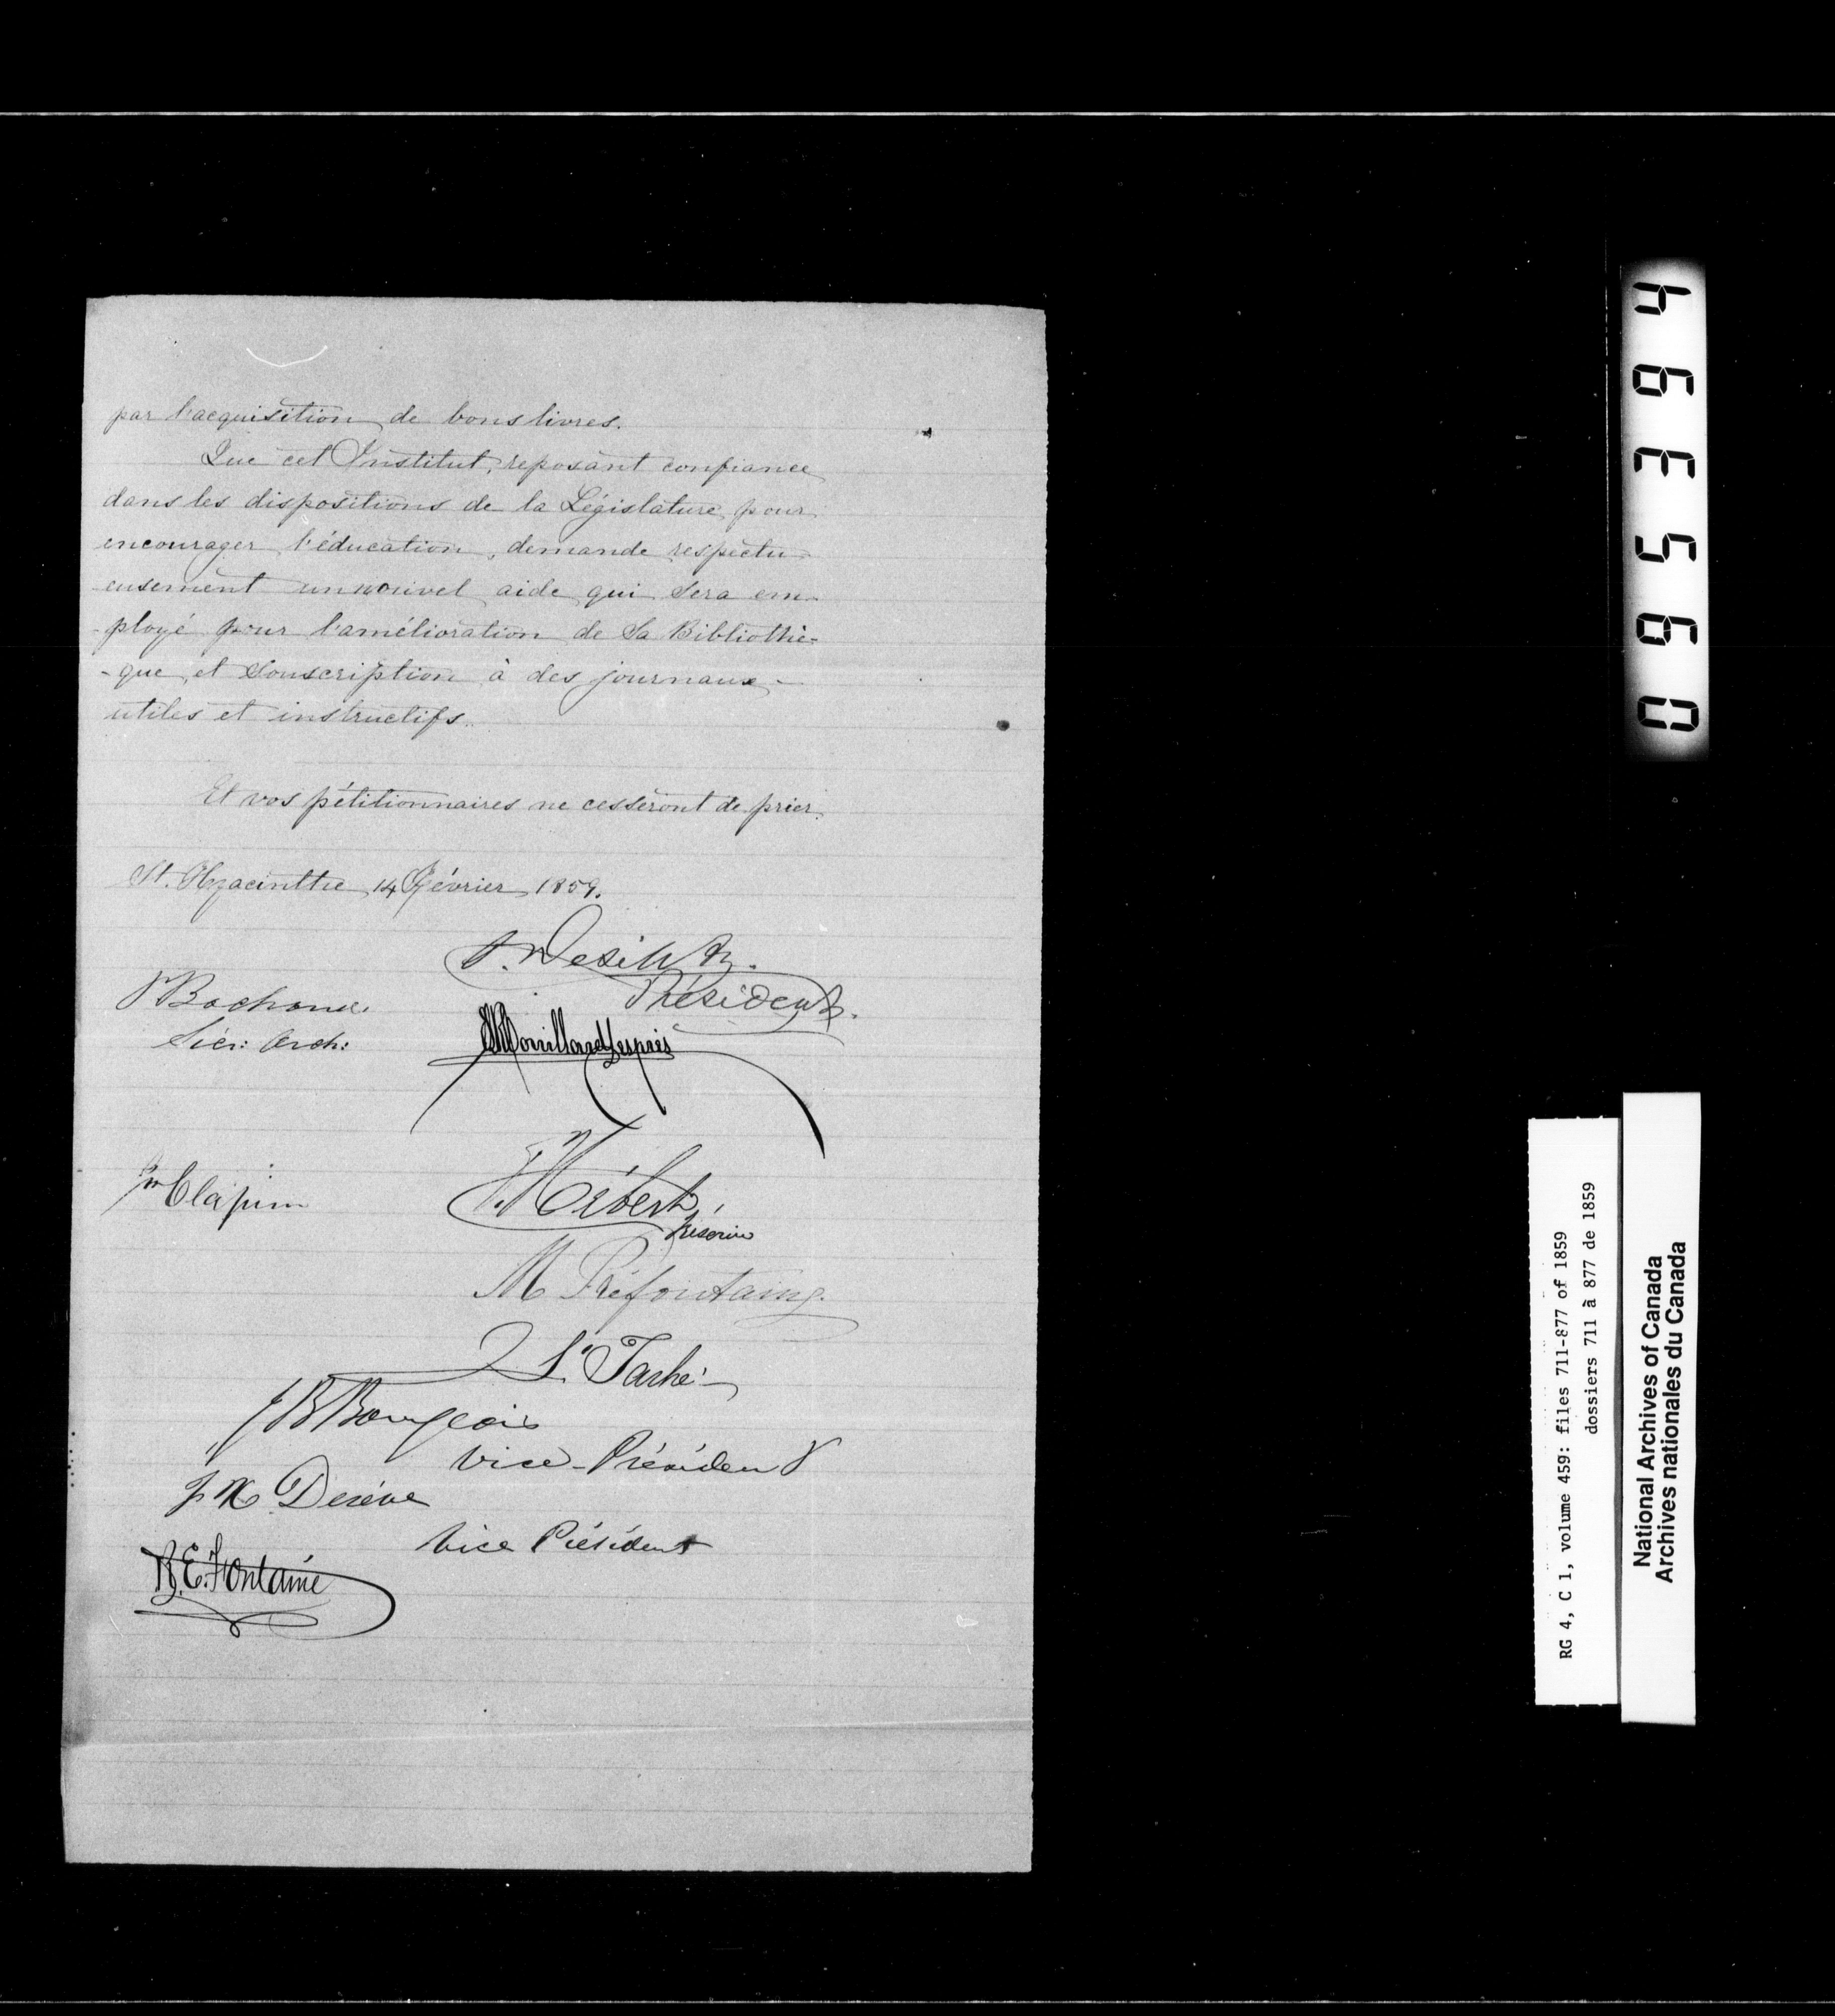 par l'acquisition de bons livres.
Que cet Institut, reposant confiance
dans les dispositions de la Législature, pour
encourager l'éducation, demande respectu-
eusement un nouvel aide qui sera em-
-ployé pour l'amélioration de sa Bibliothè-
-que, et souscription à des journaux
utiles et instructifs.
Et vos pétitionnaires ne cesseront de prier.
St. Hyacinthe 14 Février 1859.
Président.
Séc: Arch:
Clapin
Hébert
Trésorier
M Préfontaine
L. Taché
JB Bourgeois
Vice-Président
Vice Président
R. E. Fontaine
0 6 5 3 6 4
RG 4, C 1, volume 459: files 711-877 of 1859
dossiers 711 à 877 de 1859
National Archives of Canada
Archives nationales du Canada